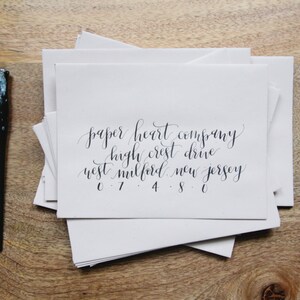 paper heart company
high crest drive
west milford new jersey
0 7 4 8 0